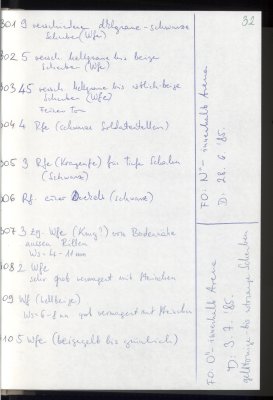 32
301 9 verschiedene dklgraue-schwarze
Scherben (Wfe)
302 5 versch. hellgraue bis beige
Scherben (Wfe)
303 45 versch. hellgraue bis rötlich-beige
Scherben (Wfe)
Feiner Ton
304 4 Rfe (schwarze
305 3 Rfe (Kragenfe) für tiefe Schalen
(Schwarz)
306 Rf. einer (schwarz)
307 3 Wfe von Bodennähe
aussen Rillen
Ws = 4-11 mm
308 2 Wfe
sehr grob vermagert mit Steinchen
309 Wf (hellbeige)
Ws = 6-8 mm grob vermagert mit Steinchen
310 5 Wfe (beigegelb bis grünlich)
FO: N'- innerhalb Arena
D: 28. 6. '85.
FO: O'- innerhalb Arena
D: 3. 7. '85.